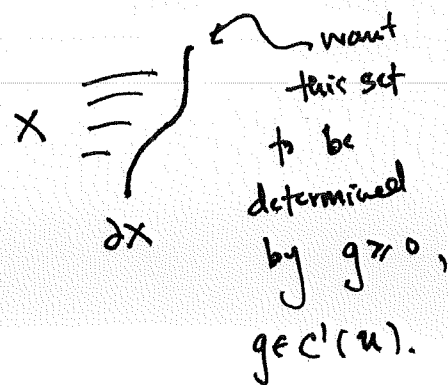 want
this set
to be
determined
by g≥0,
g∈C'(u).
X
∂X